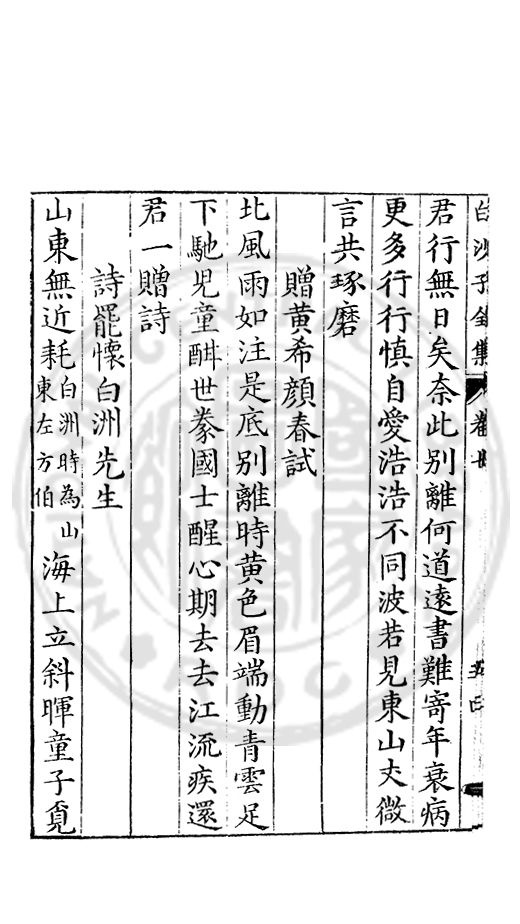 白沙子全集 卷
君行無日矣奈此別離何道遠書難寄年衰病
更多行行慎自愛浩浩不同波若見東山丈微
言共琢磨
贈黄希顔春試
北風雨如注是底別離時黄色眉端動青雲足
下馳児童酣世豢國士醒心期去去江流疾還
君一贈詩
詩罷懷白洲先生
山東無近耗白洲時為山東左方伯海上立斜暉童子覔